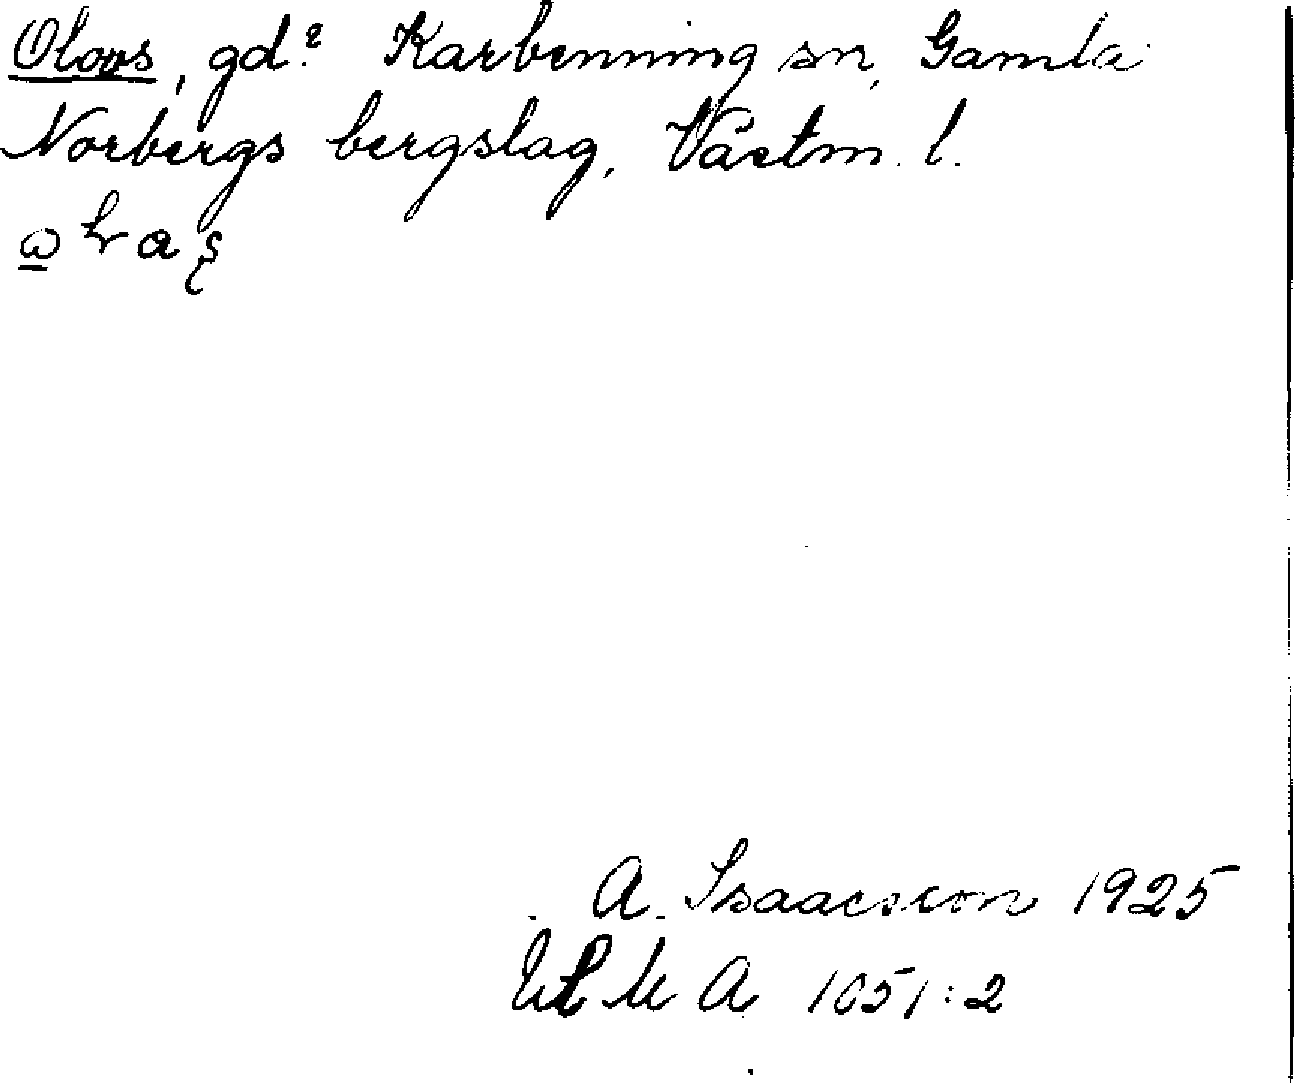 Olovs, gd? Karbenning sn, Gamla
Norbergs bergslag, Västm. l.
A. Isaacsson 1925
ULMA 1051:2